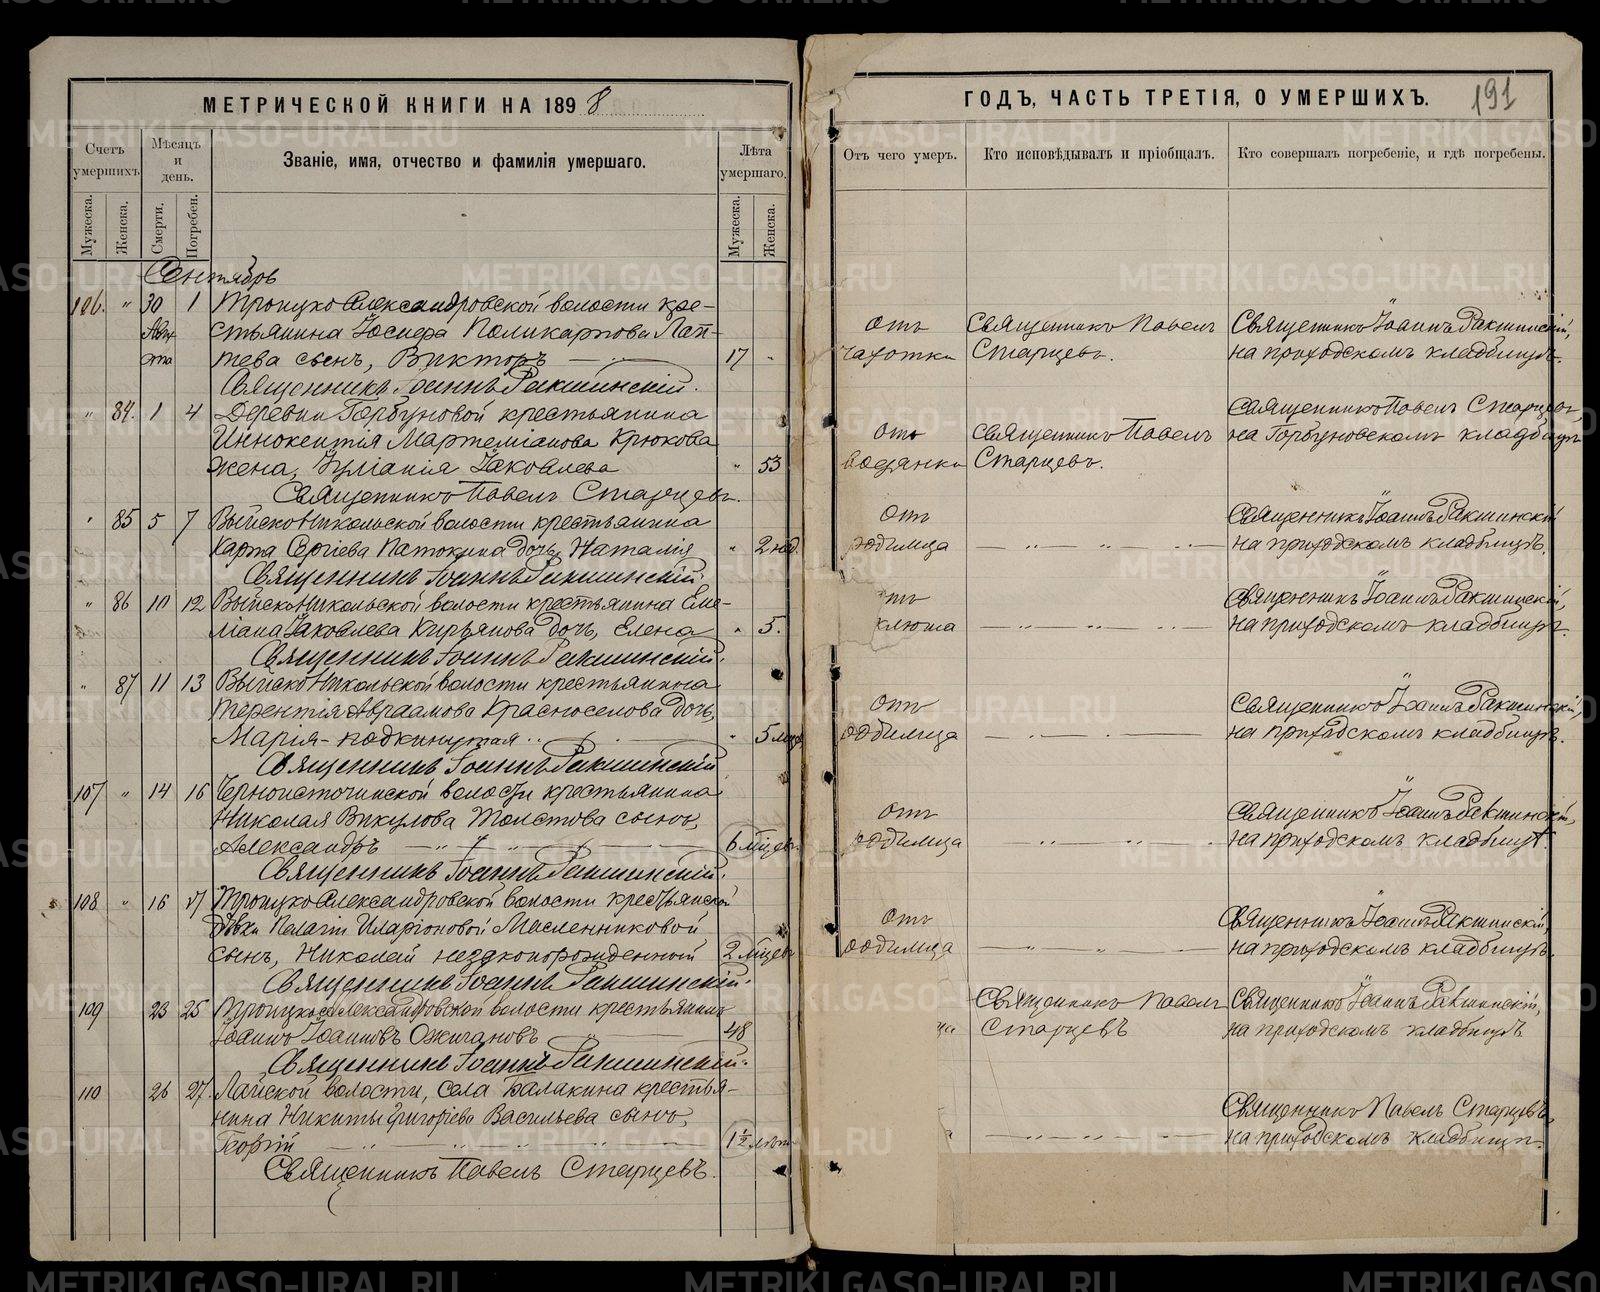 МЕТРИЧЕСКОЙ КНИГИ НА 1898
Счетъ умершихъ.
Мѣсяцъ и день.
Званіе, имя, отчество и фамилія умершаго.
Лѣта умершаго.
Мужеска.
Женска.
Смерти.
Погребен.
Мужеска.
Женска.
Сентябрь
106. " 30 1 Троицко Александровской волости кре-
Авгу стьянина Іосифа Поликарпова Лап-
ста тева сынъ, Викторъ 17 "
Священникъ Іоаннъ Ракшинскій.
" 84. 1 4 Деревни Горбуновой крестьянина
Иннокентія Мартеміанова Крюкова
жена, Іуліанія Іаковлева " 53
Священникъ Павелъ Старцевъ.
" 85 5 7 Выйско Никольской волости крестьянина
Карпа Сергіева Патокина дочь, Наталія " 2 нед.
Священникъ Іоаннъ Ракшинскій.
" 86 10 12 Выйско Никольской волости крестьянина Еме-
ліана Іаковлева Кирьянова дочь, Елена " 5.
Священникъ Іоаннъ Ракшинскій.
" 87 11 13 Выйско Никольской волости крестьянина
Терентія Авраамова Красноселова дочь,
Марія - подкинутая " 5 мцв
Священникъ Іоаннъ Ракшинскій
107 " 14 16 Черноисточинской волости крестьянина
Николая Викулова Толстова сынъ,
Александръ 6 мцевъ.
Священникъ Іоаннъ Ракшинскій.
108 " 16 17 Троицко Александровской волости крестьянской
дѣвки Пелагіи Иларіоновой Масленниковой
сынъ, Николай незаконорожденный 2 мцевъ
Священникъ Іоаннъ Ракшинскій.
109 23 25 Троицко Александровской волости крестьянинъ
Іоаннъ Іоанновъ Ожигановъ 48
Священникъ Іоаннъ Ракшинскій.
110 26 27 Лайской волости, села Балакина крестья-
нина Никиты Григоріева Васильева сынъ,
Георгій 1 1/2 лѣтъ
Священникъ Павелъ Старцевъ.
ГОДЪ, ЧАСТЬ ТРЕТІЯ, О УМЕРШИХЪ. 191
Отъ чего умеръ.
Кто исповѣдывалъ и пріобщалъ.
Кто совершалъ погребеніе, и гдѣ погребены.
Отъ Священникъ Павелъ Священникъ Іоаннъ Ракшинскій,
чахотки Старцевъ. на приходскомъ кладбищѣ.
Священникъ Павелъ Старцевъ,
Отъ Священникъ Павелъ на Горбуновскомъ кладбищѣ
водянки Старцевъ.
Отъ Священникъ Іоаннъ Ракшинскій
родимца на приходскомъ кладбищѣ.
Священникъ Іоаннъ Ракшинскій,
коклюша на приходскомъ кладбищѣ.
Отъ Священникъ Іоаннъ Ракшинскій,
родимца на приходскомъ кладбищѣ.
Отъ Священникъ Іоаннъ Ракшинскій,
родимца на приходскомъ кладбищѣ.
Отъ Священникъ Іоаннъ Ракшинскій
родимца на приходскомъ кладбищѣ.
Священникъ Павелъ Священникъ Іоаннъ Ракшинскій,
Старцевъ на приходскомъ кладбищѣ
Священникъ Павелъ Старцевъ,
на приходскомъ кладбищѣ.
METRIKI.GASO-URAL.RU